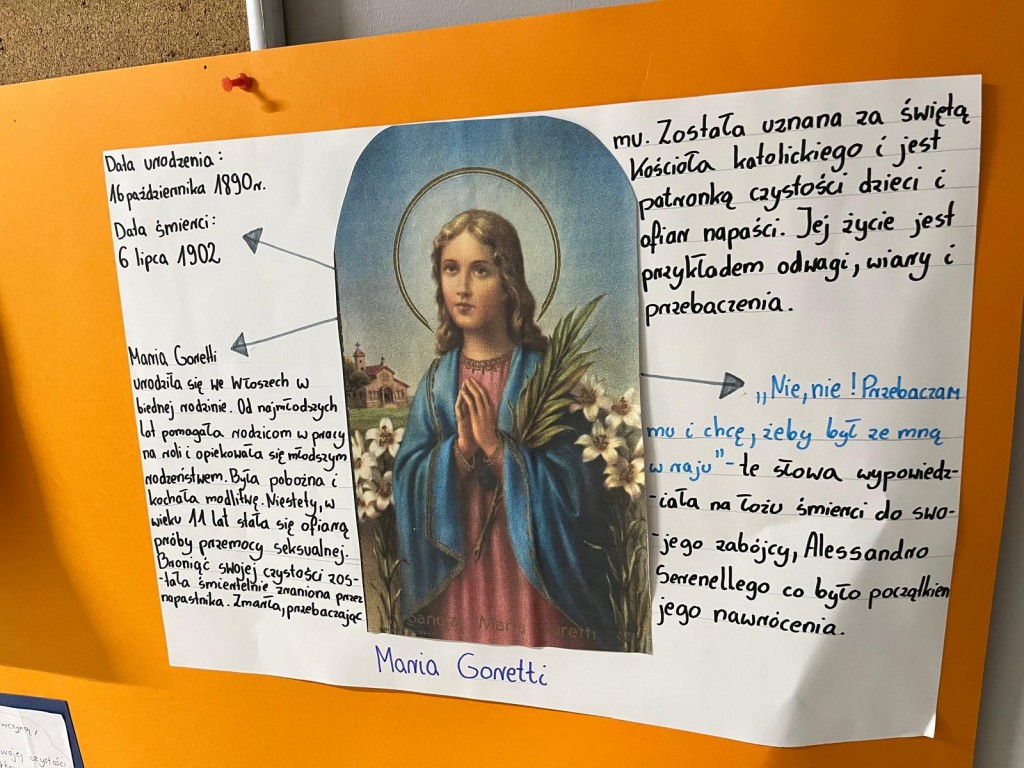 Data urodzenia:
16 października 1890r.
Data śmierci:
6 lipca 1902
Maria Goretti
urodziła się we Włoszech w
biednej rodzinie. Od najmłodszych
lat pomagała rodzicom w pracy
na roli i opiekowała się młodszym
rodzeństwem. Była pobożna i
kochała modlitwę. Niestety, w
wieku 11 lat stała się ofiarą
próby przemocy seksualnej.
Broniąc swojej czystości zos-
-tała śmiertelnie zraniona przez
napastnika. Zmarła, przebaczając
mu. Została uznana za świętą
Kościoła katolickiego i jest
patronką czystości dzieci i
ofiar napaści. Jej życie jest
przykładem odwagi, wiary i
przebaczenia.
„Nie, nie! Przebaczam
mu i chcę, żeby był ze mną
w raju" - te słowa wypowiedz-
-iała na łożu śmierci do swo-
-jego zabójcy, Alessandro
Serenellego co było początkiem
jego nawrócenia.
Sancta Maria Goretti
Maria Goretti
wojej czystości